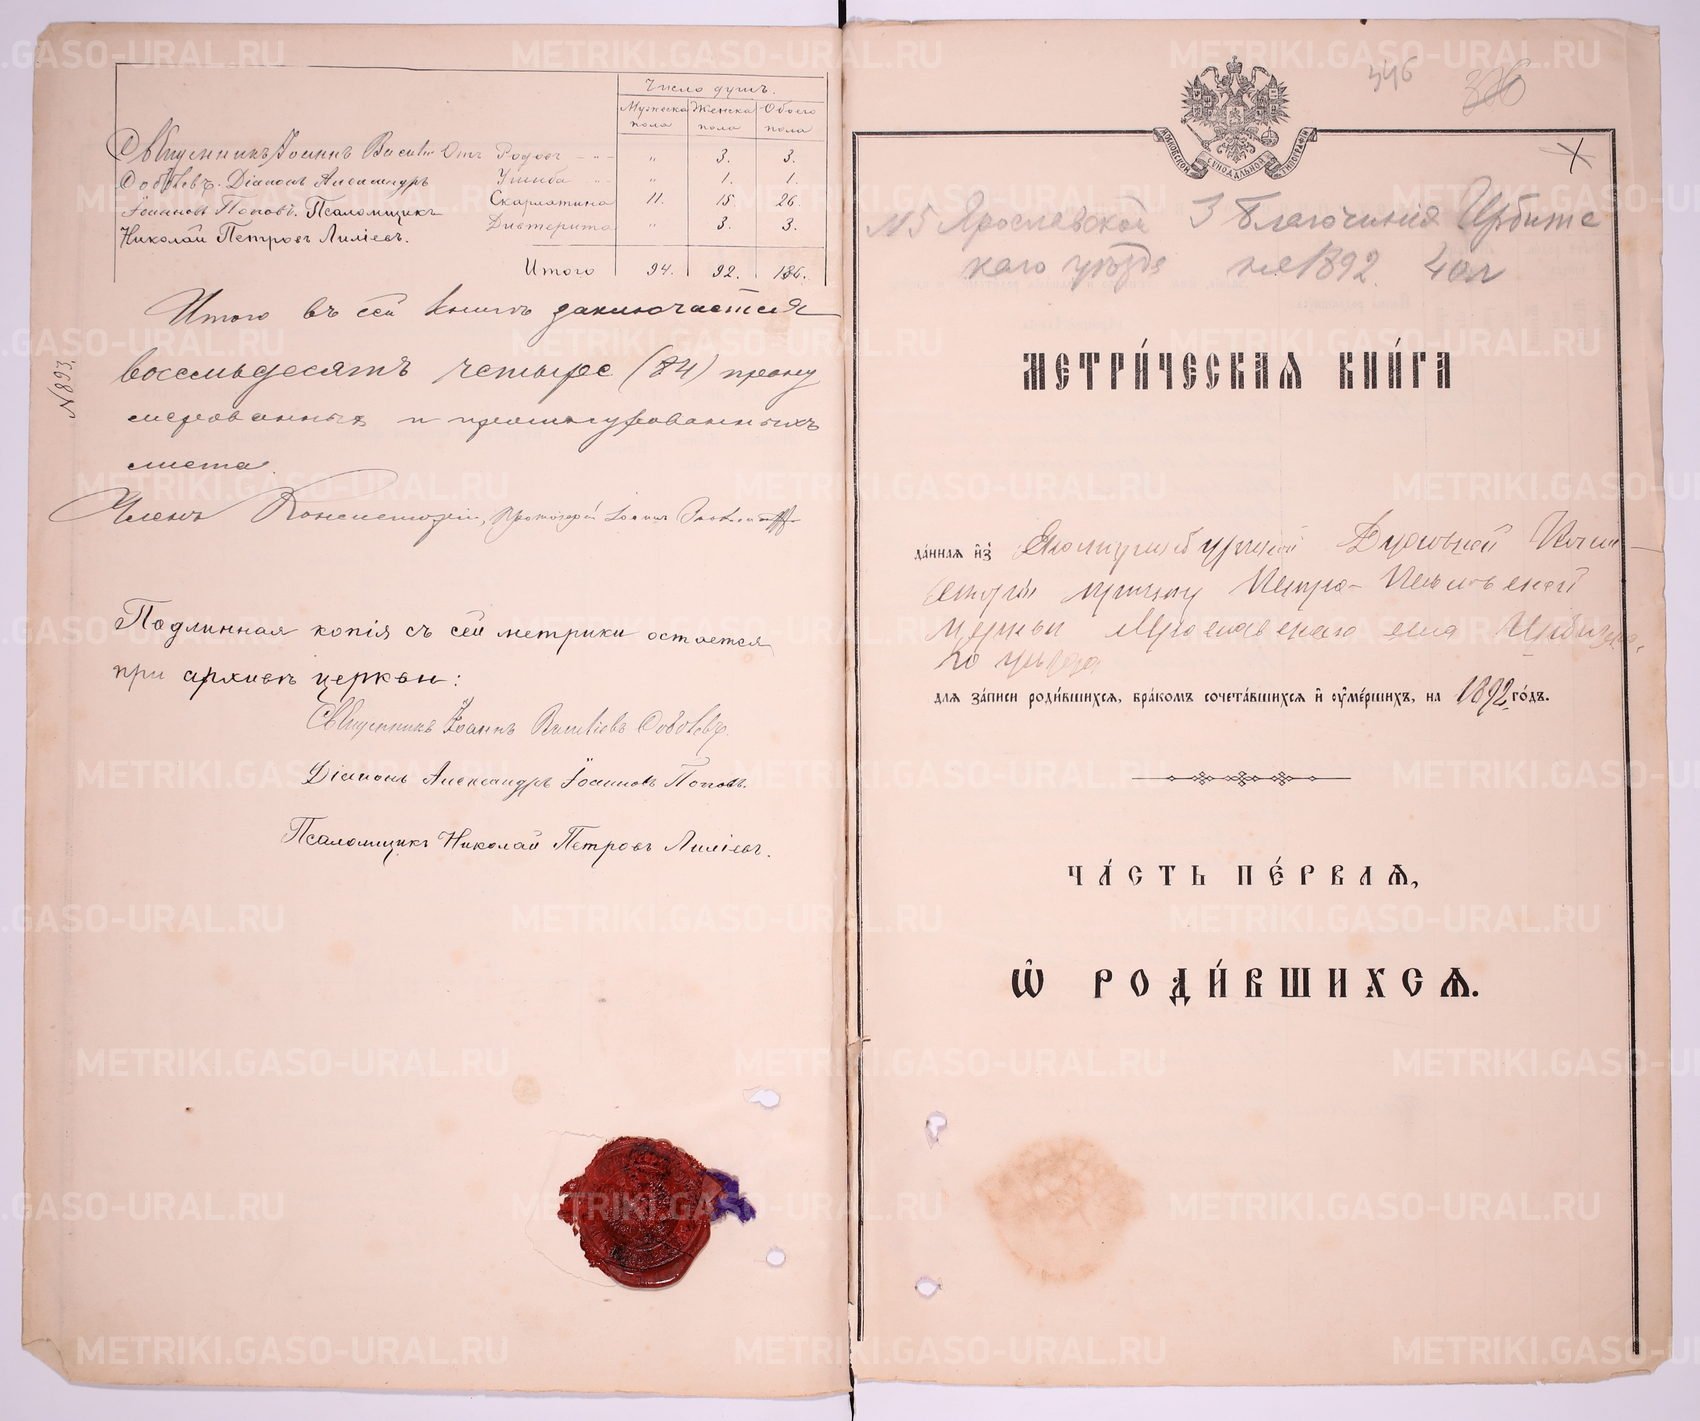 Число душъ.
Мужеска пола
Женска пола
Обоего пола
Священникъ Іоаннъ Василіевъ
Отъ Родовъ - „ - „ 3. 3.
Соболевъ. Діаконъ Александръ
Ушиба „ 1. 1.
Іоанновъ Поповъ. Псаломщикъ
Скарлатина 11. 15. 26.
Николай Петровъ Лиліевъ.
Дифтерита „ 3. 3.
Итого 94. 92. 186.
Итого въ сей книгѣ заключается
восемьдесятъ четыре (84) прону
мерованныхъ и прошнурованныхъ
листа.
Членъ Консисторіи, Протоіерей Іоаннъ
Подлинная копія съ сей метрики остается
при архивѣ церкви:
Священникъ Іоаннъ Василіевъ Соболевъ.
Діаконъ Александръ Іоанновъ Поповъ.
Псаломщикъ Николай Петровъ Лиліевъ.
346
МОСКОВСКОЙ СѴНОДАЛЬНОЙ ТИПОГРАФІИ
N5 Ярославской 3 благочинія Ирбитс
каго уѣзда 1892. 40л
МЕТРИ́ЧЕСКАѦ КНИ́ГА
да́ннаѧ и҆з̾ Екатеринбургской Духовной Конси-
сторіи причту Петро-Павловской
церкви Ярославскаго села Ирбитска-
го уѣзда
для за́писи роди́вшихсѧ, бра́комъ сочета́вшихсѧ и҆ ᲂу҆ме́ршихъ, на 1892 го́дъ.
ЧА́СТЬ ПЕ́РВАѦ,
Ѡ҆ РОДИ́ВШИХСѦ.
METRIKI.GASO-URAL.RU